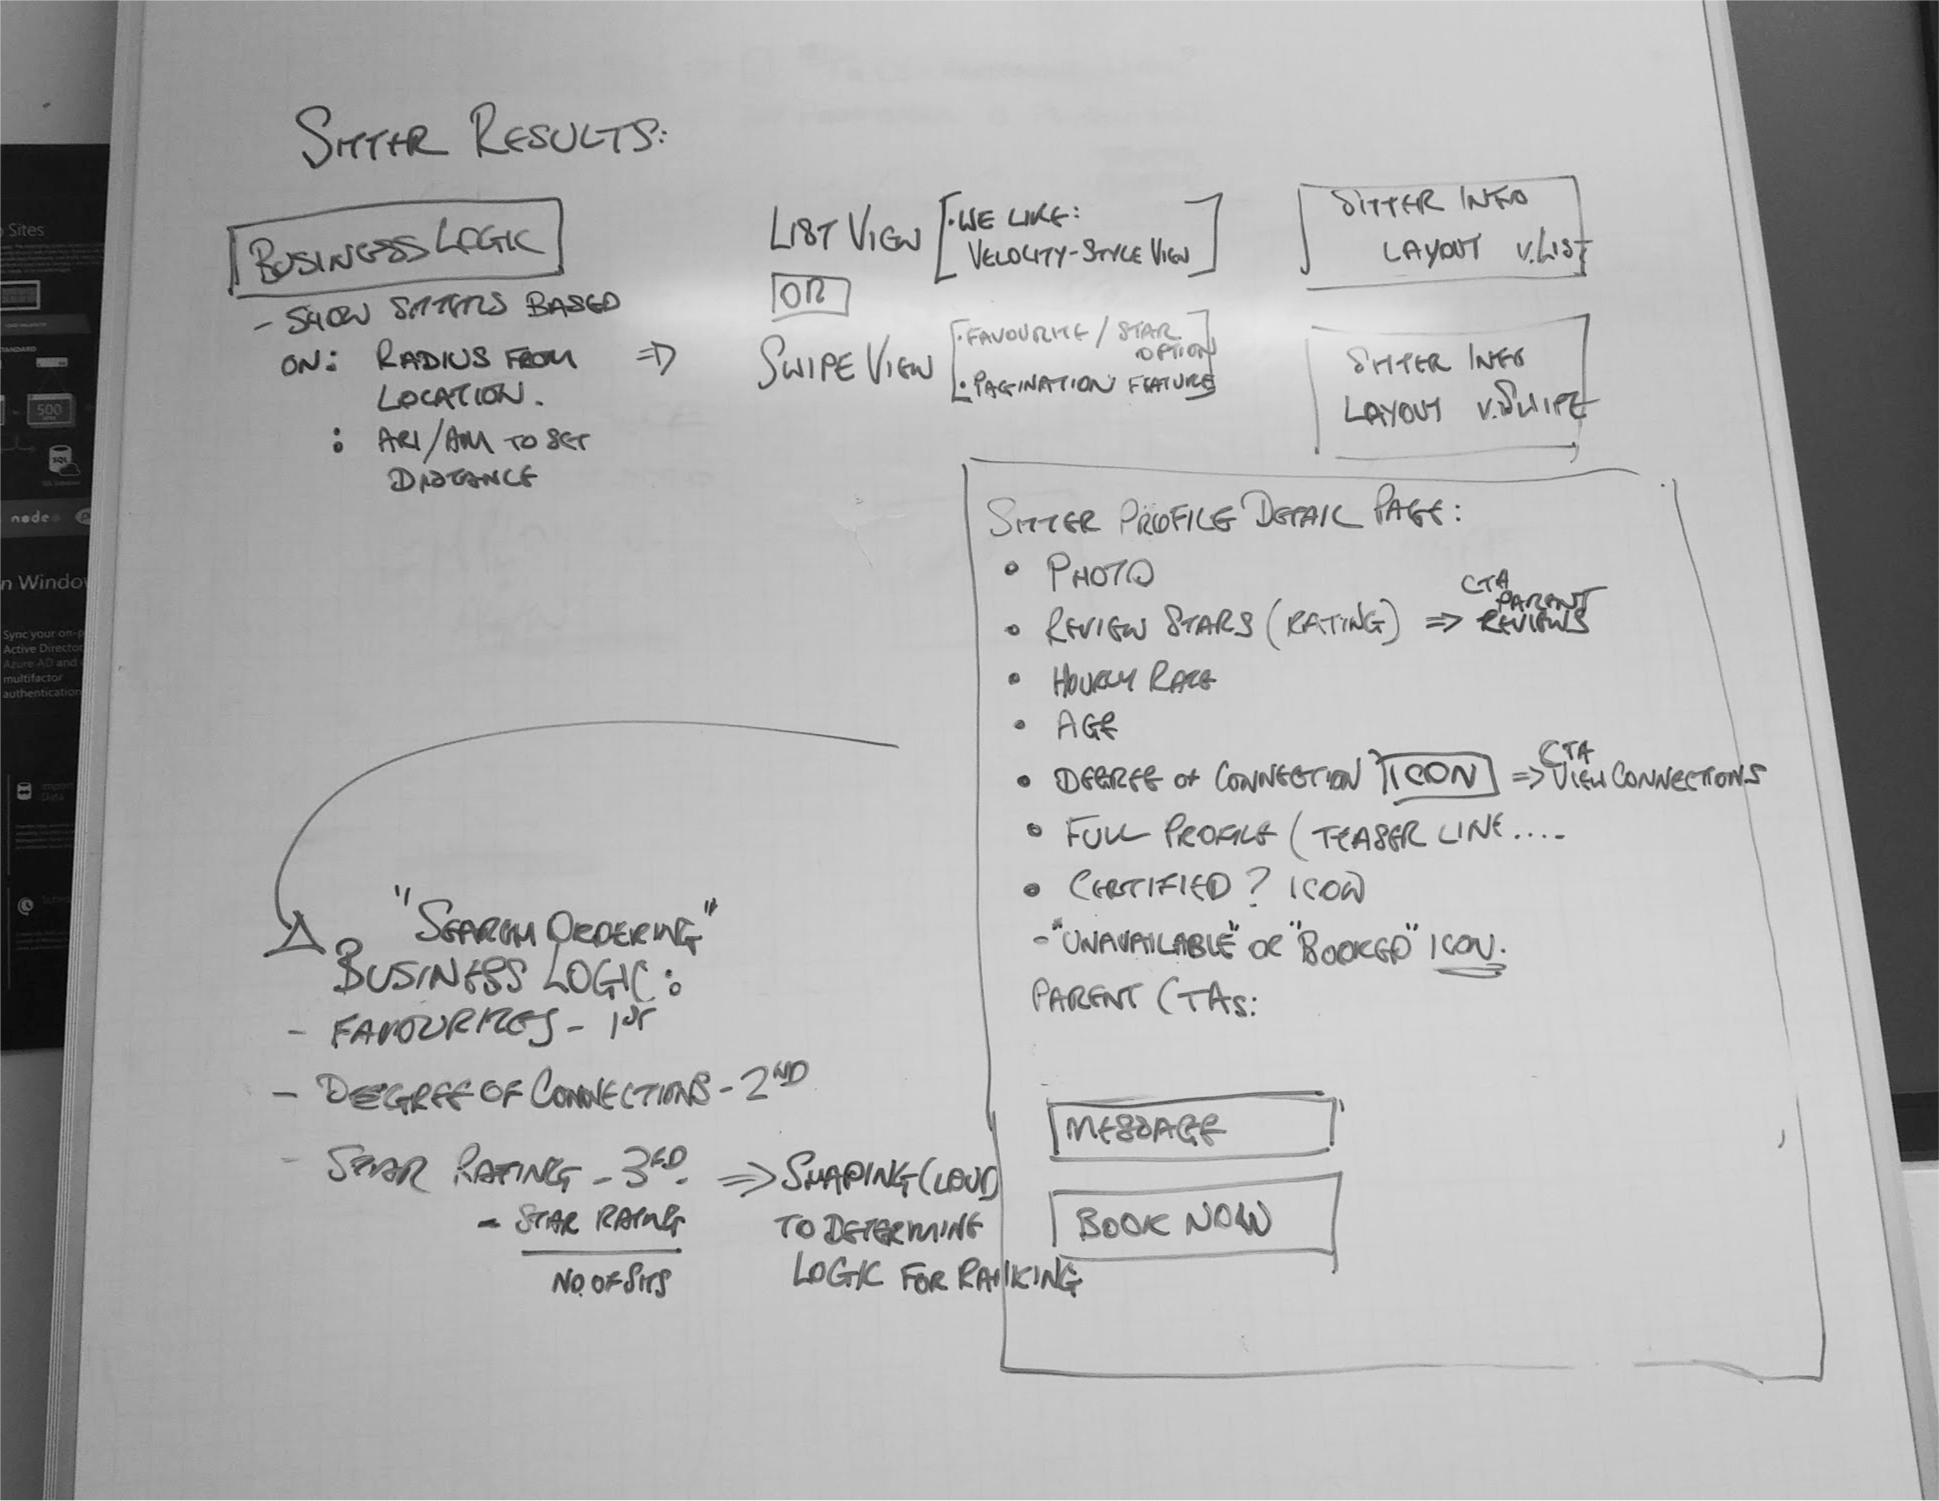 SITTER RESULTS:
BUSINESS LOGIC
- SHOW SITTERS BASED
ON: RADIUS FROM
LOCATION.
: ARI/AM TO SET
DISTANCE
⇒
LIST VIEW
• WE LIKE:
VELOCITY-STYLE VIEW
OR
SWIPE VIEW
• FAVOURITE / STAR
OPTION
• PAGINATION FEATURE
SITTER INFO
LAYOUT V.LIST
SITTER INFO
LAYOUT V.SWIPE
SITTER PROFILE DETAIL PAGE:
• PHOTO
• REVIEW STARS (RATING) ⇒ CTA
PARENT
REVIEWS
• HOURLY RATE
• AGE
• DEGREE OF CONNECTION ICON ⇒ CTA
VIEW CONNECTIONS
• FULL PROFILE (TEASER LINE....
• CERTIFIED? ICON
- "UNAVAILABLE" OR "BOOKED" ICON.
PARENT CTAS:
MESSAGE
BOOK NOW
"SEARCH ORDERING"
BUSINESS LOGIC:
- FAVOURITES - 1ST
- DEGREE OF CONNECTIONS - 2ND
- STAR RATING - 3RD.
- STAR RATING
NO. OF SITS
⇒ SNAPING CLOUD
TO DETERMINE
LOGIC FOR RANKING
Sites
STANDARD
500
SQL
node
n Window
Sync your on-p
Active Director
Azure AD and
multifactor
authentication
Import
Data